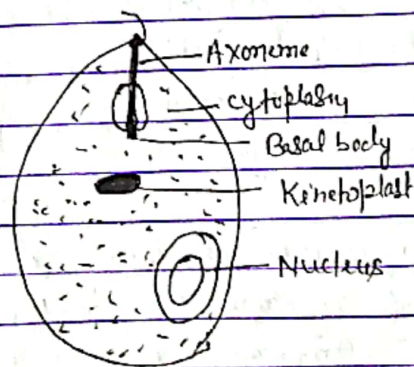 Axoneme
cytoplasm
Basal body
Kinetoplast
Nucleus